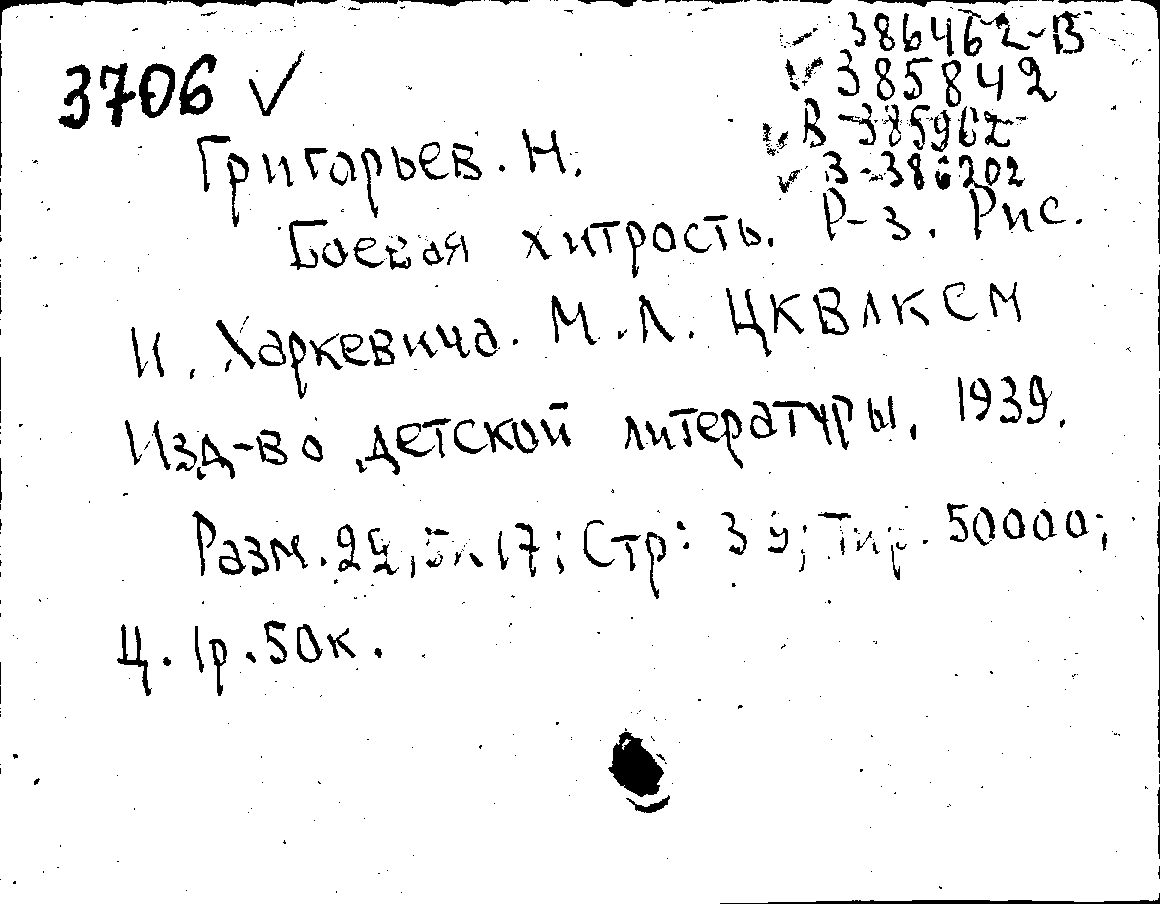 3706 ✓
✓ 386462-В
✓ 385842
✓ В-385962
✓ В-386202
Григорьев. Н.
Боевая хитрость. Р-з. Рис.
И. Харкевича. М.Л. ЦКВЛКСМ
Изд-во детской литературы, 1939.
Разм. 22,5х17; Стр: 39; Тир. 50000;
Ц. 1р.50к.